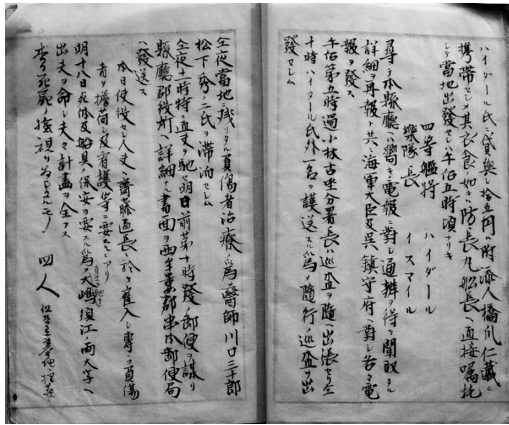 ハイダール氏ニ貸與シ拾五円ハ附添人橋爪仁蔵ニ
携帯セシメ其衣食ノ如キハ防長丸船長ヘ直接嘱托
シテ當地出發セシム午后五時頃ナリキ
四等艦将 ハイダール
樂隊長 イスマイル
尋テ本縣廳ニ向ケ電報ニ對シ通辨ヲ得テ聞取タル
詳細ヲ再報シ共ニ海軍大臣及呉鎮守府ニ對シ各々電
報ヲ發ス
午后第五時過小林古座分署長ハ巡査ヲ随ヘ出張セリ全
十時ハイダール氏外一名ヲ護送スル為随行ノ巡査出
發セシム
全夜當地ニ残リタル負傷者治療ノ為醫師川口三十郎
松下秀ノ二氏ヲ滞泊セシム
全夜十時特ニ直夫ヲ馳セ明日前第十時發ノ郵便ニ謀リ
縣廳郡役所ニ詳細ノ書面ヲ西牟婁郡串本郵便局
ヘ發送ス
本日使役セシ人夫ハ齋藤区長ニ於テ雇入レ専ラ負傷
者ヲ擔荷シ及看護等ニ要スルニアリ
明十八日死体及船具ノ保安ヲ要スル為大嶋須江ノ両大字ヘ
出夫ヲ命シ夫々計畫ヲ全フス
本日死屍ノ検視ヲ為シタルモノ 四人